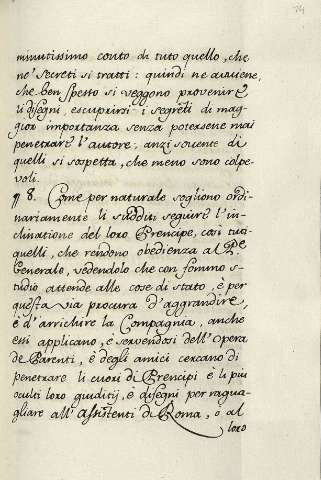 minutissimo conto di tuto quello, che
ne' secreti si tratti: quindi ne avviene,
che ben spesso si veggono provenire
li disegni, e scuprirsi i segreti di mag-
gior importanza senza potersene mai
penetrare l'autore, anzi sovente di
quelli si sospetta, che meno sono colpe-
voli.
¶ 8. Come per naturale sogliono ordi-
nariamente li sudditi seguire l'in-
clinatione del loro Prencipe, cosi tuti
quelli, che rendono obedienza al Pe.
Generale, vedendolo che con sommo s-
tudio attende alle cose di stato, è per
questa via procura d'aggrandire,
è d'arrichire la Compagnia, anche
essi applicano, e servendosi dell'opera
de Parenti, è degli amici cercano di
penetrare li cuori di Prencipi è li piu
oculti loro giuditij, è disegni per ragua-
gliare all'Assistenti di Roma, ò al
loro